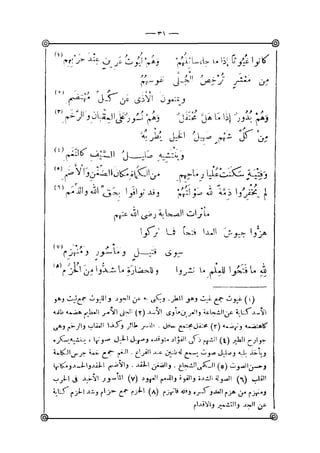 — ٣١ —
كانوا غيوثا إذا ما جاء سائلهم وهم ليوث عرين عند حربهم (١)
من معشر ترخص الجلى نفوسهم
ويمنعون الأذى عن كل مهتضم (٢)
وهم بدور إذا ما هل محتفل وهم نسور على العقبان والرخم (٣)
من كل شهم صهيل الخيل يطربه
وينتشيه صليل السيف كالنغم (٤)
وفتية سكنت عليا رماحهم من الكماة مكان الضغن والأضم (٥)
لم يخفروا ذمة لله صولتهم وقد توافوا بحق الله والذمم (٦)
مأثرات الصحابة رضى الله عنهم
هزوا جيوش العدا فتحا فما تركوا
سوى قتيل ومأسور ومنهزم (٧)
لله ما فتحوا للعلم ما نشروا وللحضارة ما شدوا من الحزم (٨)
(١) غيوث جمع غيث وهو المطر. ويكنى به عن الجود والليوث جمع ليث وهو
الأسد كناية عن الشجاعة والعرين مأوى الأسد (٢) الجلى الأمر العظيم هضمه ظلمه
كاهتضمه وتهضمه (٣) محتفل مجتمع حفل . النسر طائر وكذا العقاب والرخم وهى
جوارح الطير (٤) الشهم ذكى الفؤاد متوقده وصهيل الخيل صوتها ، ينتشيه يسكره
ويأخذ بلبه وصليل صوت يسمع له طنين عند القراع . النغم جمع نغمة جرس الكلمة
وحسن الصوت (٥) الكمى الشجاع . والضغن الحقد . والأضم الحقد والحسد ومكانها
القلب (٦) الصولة الشدة والقوة والذمم العهود (٧) المأسور الأخيذ فى الحرب
ومنهزم من هزم العدو كسره وفله فانهزم (٨) الحزم جمع حزام وشد الحزم كناية
عن الجد والتشمير والاقدام